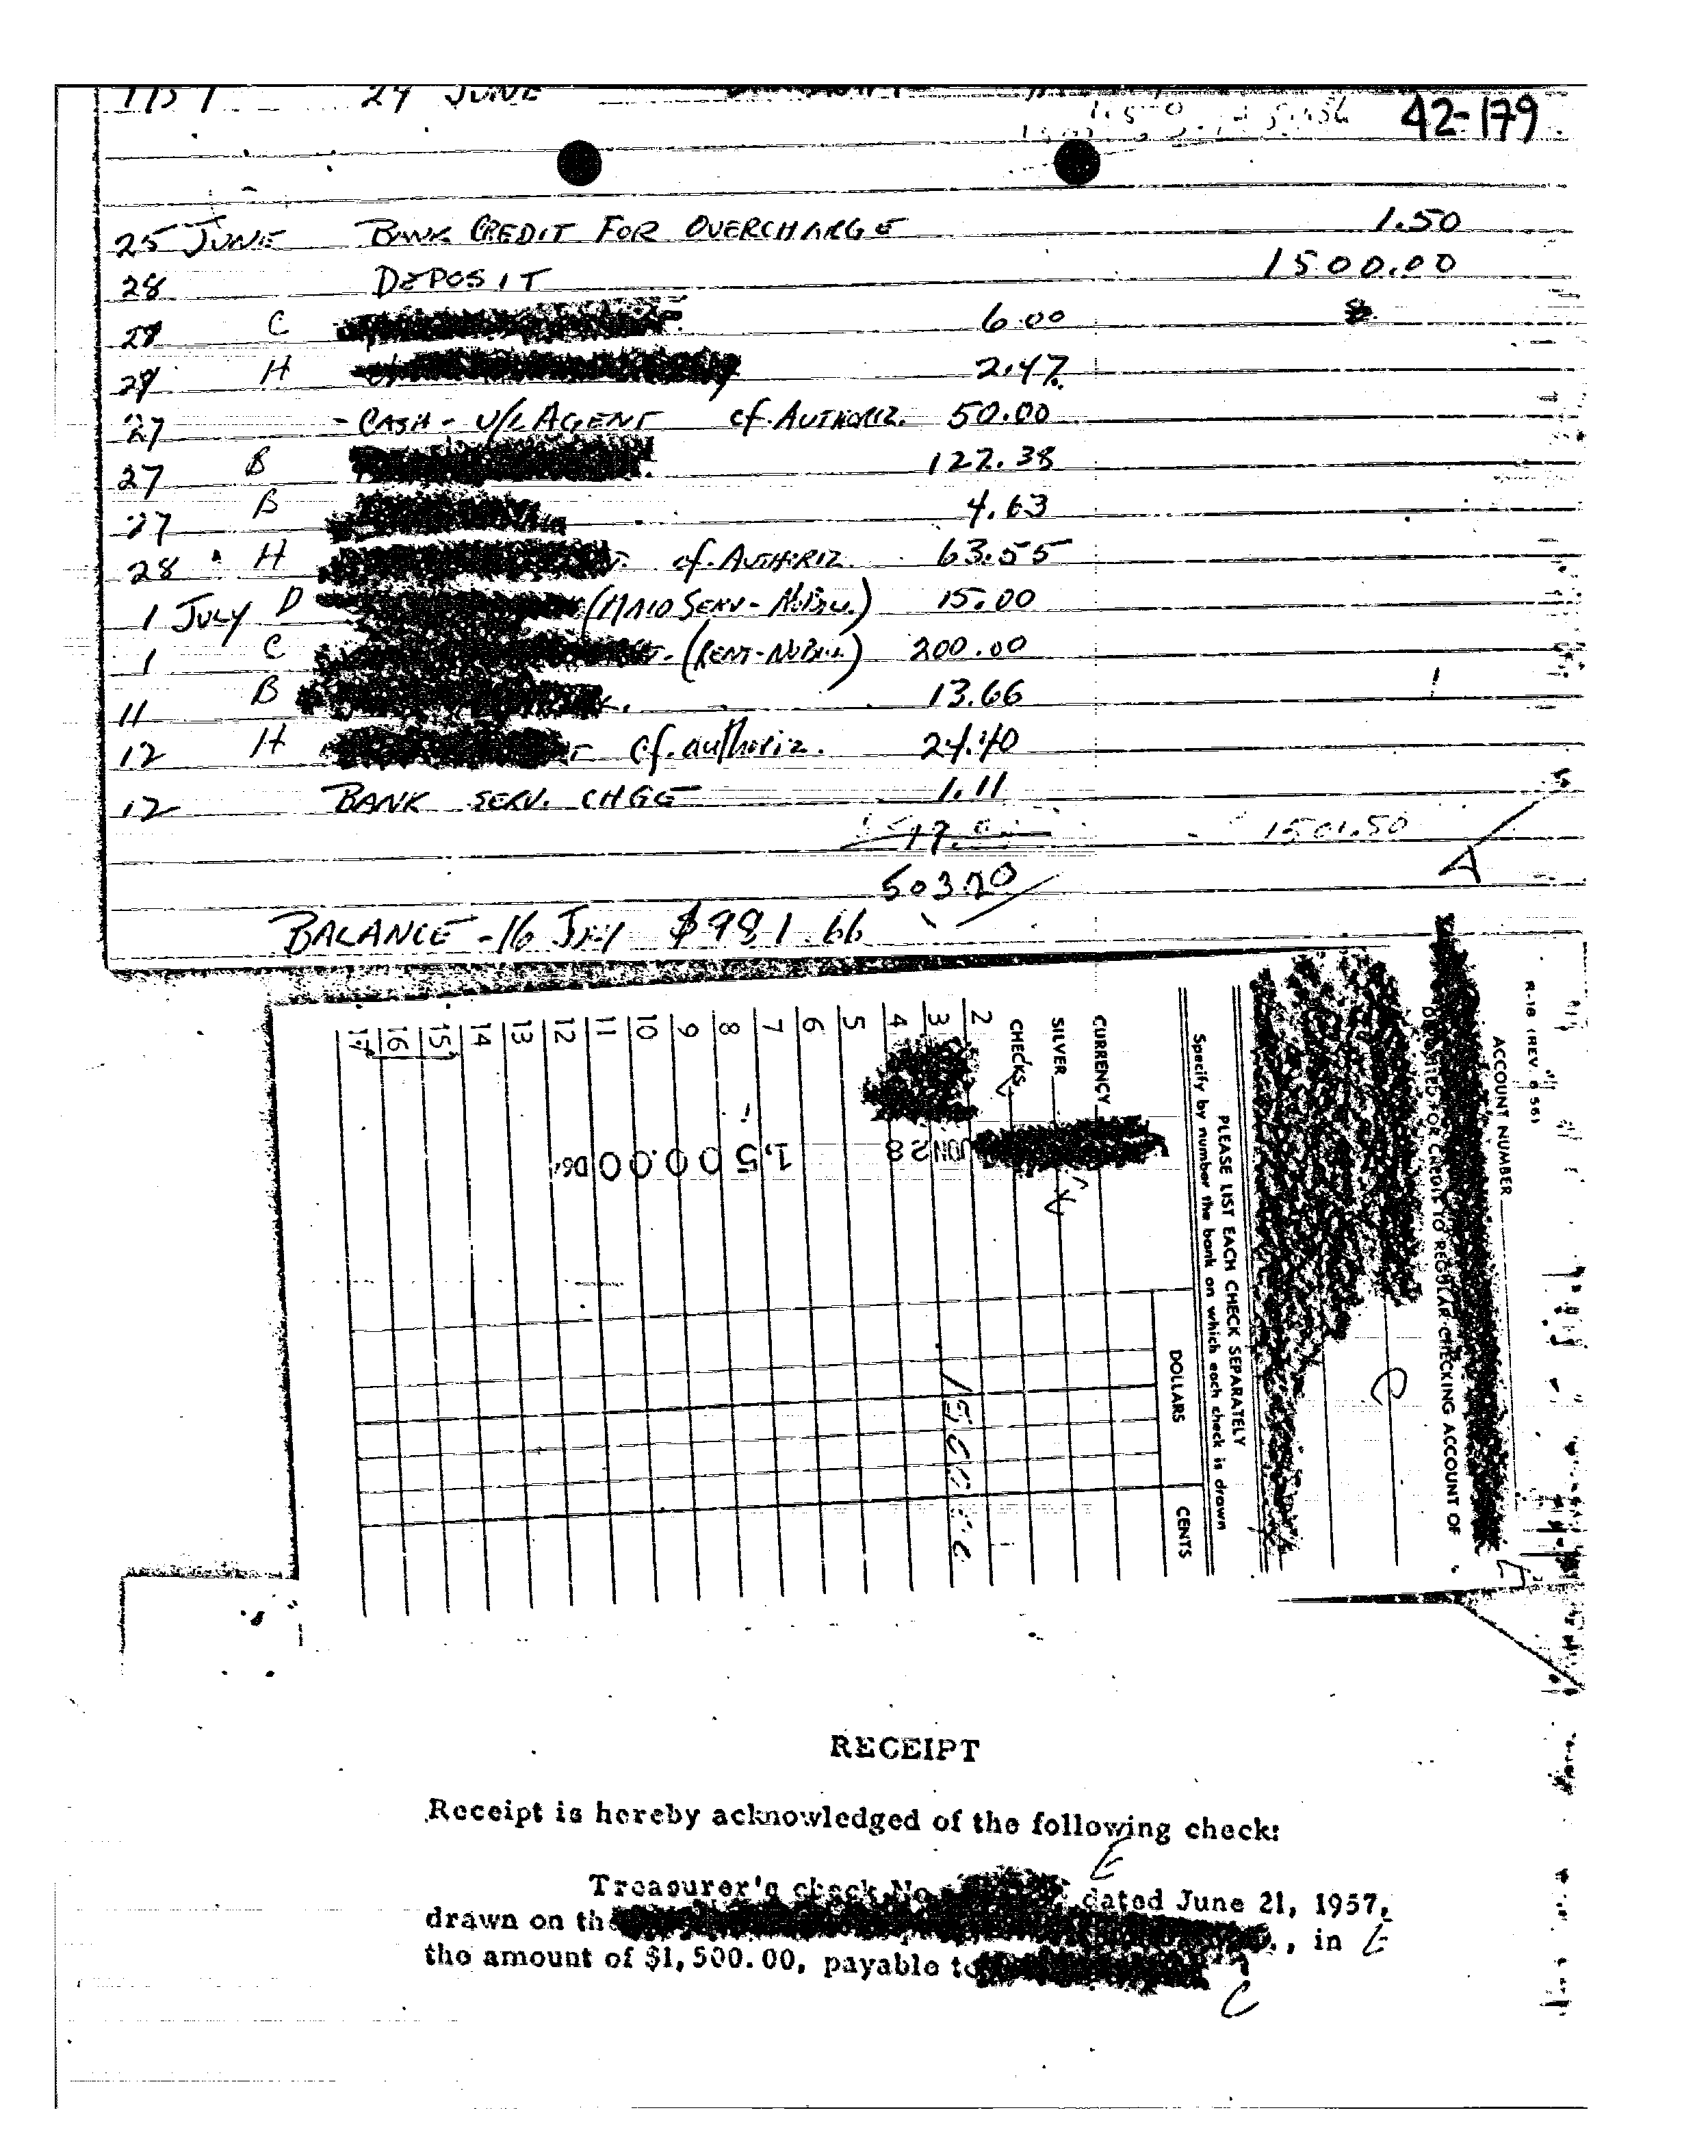 24 JUNE
42-179
25 JUNE BANK CREDIT FOR OVERCHARGE 1.50
28 DEPOSIT 1500.00
29 C 6.00
29 H 2.47
27 - CASH - U/C AGENT cf. AUTHORIZ. 50.00
27 B 122.38
27 B 4.63
28 H cf. AUTHORIZ. 63.55
1 JULY D (MAID SERV - 15.00
1 C (RENT - 200.00
11 B 13.66
12 H cf. authoriz. 24.40
12 BANK SERV. CHGE 1.11
1501.50
A
503.20
BALANCE - 16 $981.66
R-18 (REV 6 56)
ACCOUNT NUMBER
FOR CREDIT TO REGULAR CHECKING ACCOUNT OF
C
PLEASE LIST EACH CHECK SEPARATELY
Specify by number the bank on which each check is drawn
DOLLARS CENTS
CURRENCY
SILVER
CHECKS
2
3
4
5
6
7
8
9
10
11
12
13
14
15
16
17
JUN 28 1,500.00
RECEIPT
Receipt is hereby acknowledged of the following check:
E
Treasurer's check No. dated June 21, 1957,
drawn on the ., in E
the amount of $1,500.00, payable to
C